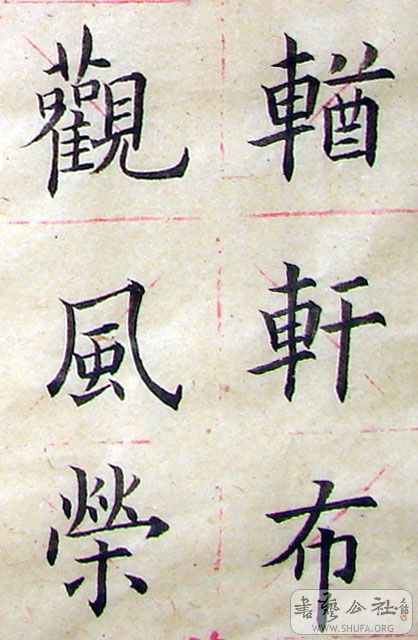 輶軒布
觀風榮
書藝公社
WWW.SHUFA.ORG